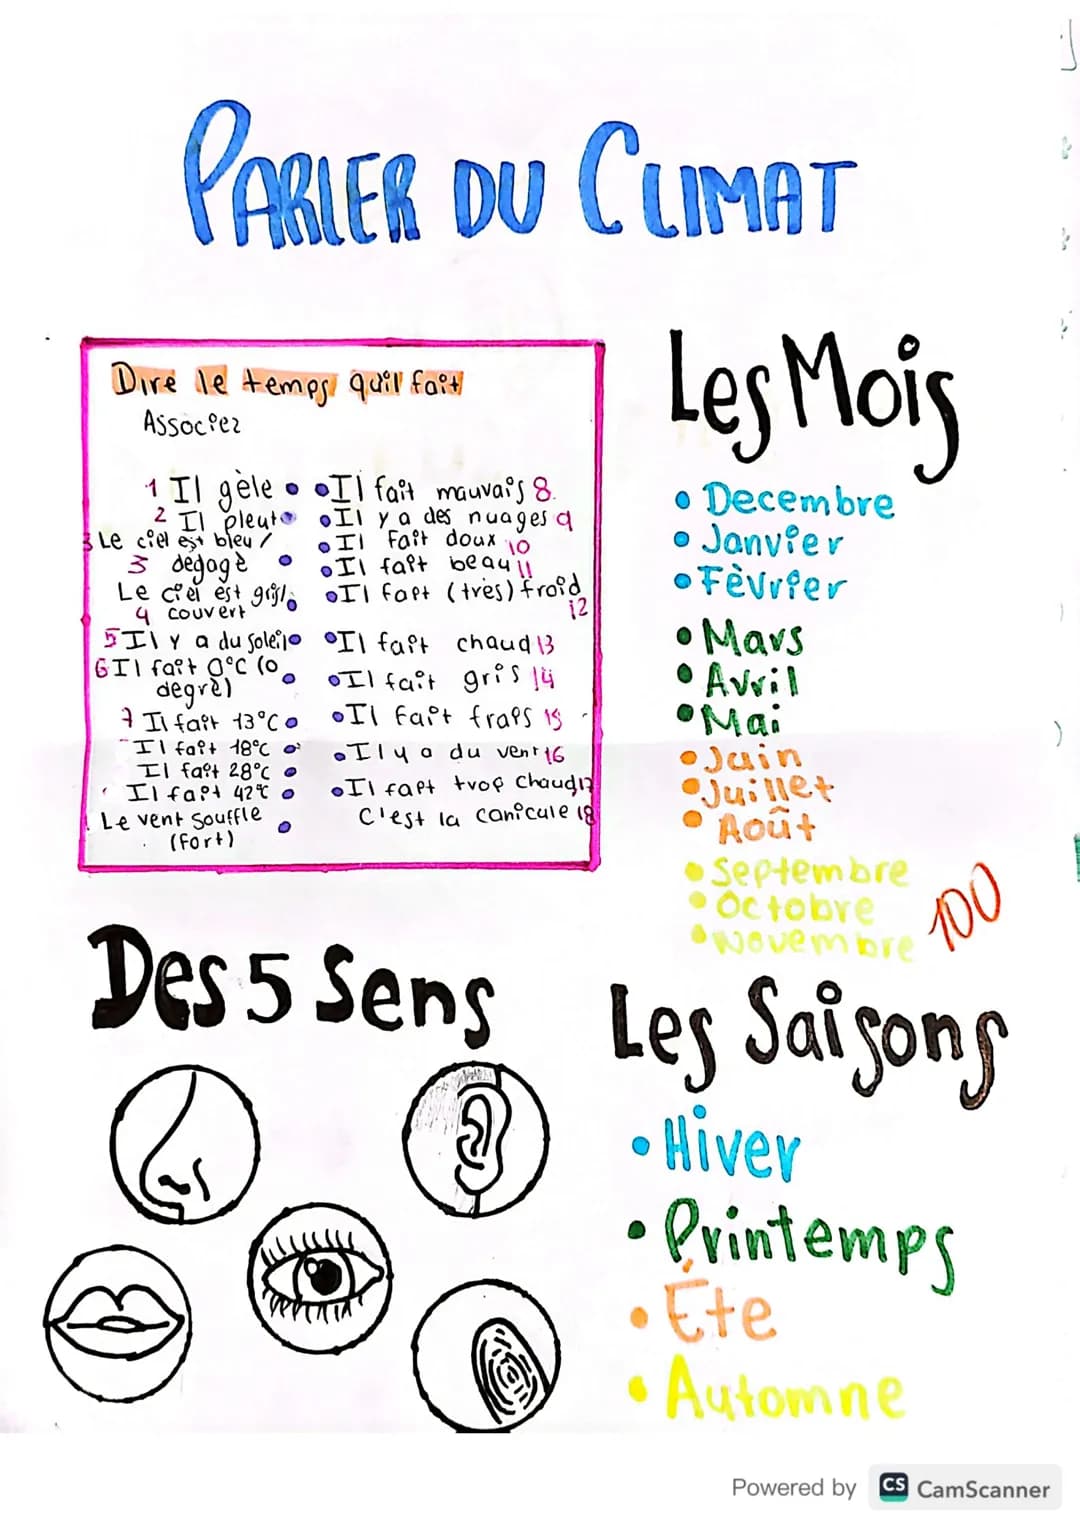 PARLER DU CLIMAT
Dire le temps qu'il fait
Associez
1 Il gèle
2 Il pleut
3 Le ciel est bleu /
3 dégagè
Le ciel est gris/
4 couvert
5 Il y a du soleil
6 Il fait 0°C (0
degrè)
7 Il fait 13°C
Il fait 18°C
Il fait 28°C
Il fait 42°C
Le vent souffle
(Fort)
Il fait mauvais 8
Il y a des nuages 9
Il fait doux 10
Il fait beau 11
Il fait (très) froid
12
Il fait chaud 13
Il fait gris 14
Il fait frais 15
Il y a du vent 16
Il fait trop chaud 17
C'est la canicule 18
Les Mois
Decembre
Janvier
Fèvrier
Mars
Avril
Mai
Juin
Juillet
Août
Septembre
Octobre
Novembre
100
Des 5 Sens
Les Saisons
Hiver
Printemps
Éte
Automne
Powered by CS CamScanner